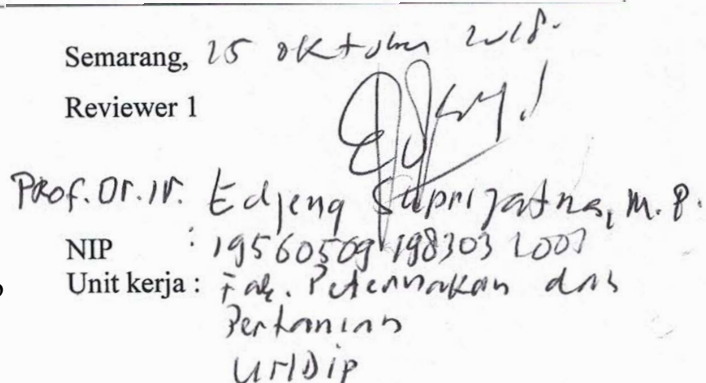 Semarang, 25 Oktober 2018.
Reviewer 1
Prof. Dr. Ir. Edjeng Suprijatna, M.P.
NIP : 19560509 198303 1001
Unit kerja : Fak. Peternakan dan
Pertanian
UNDIP